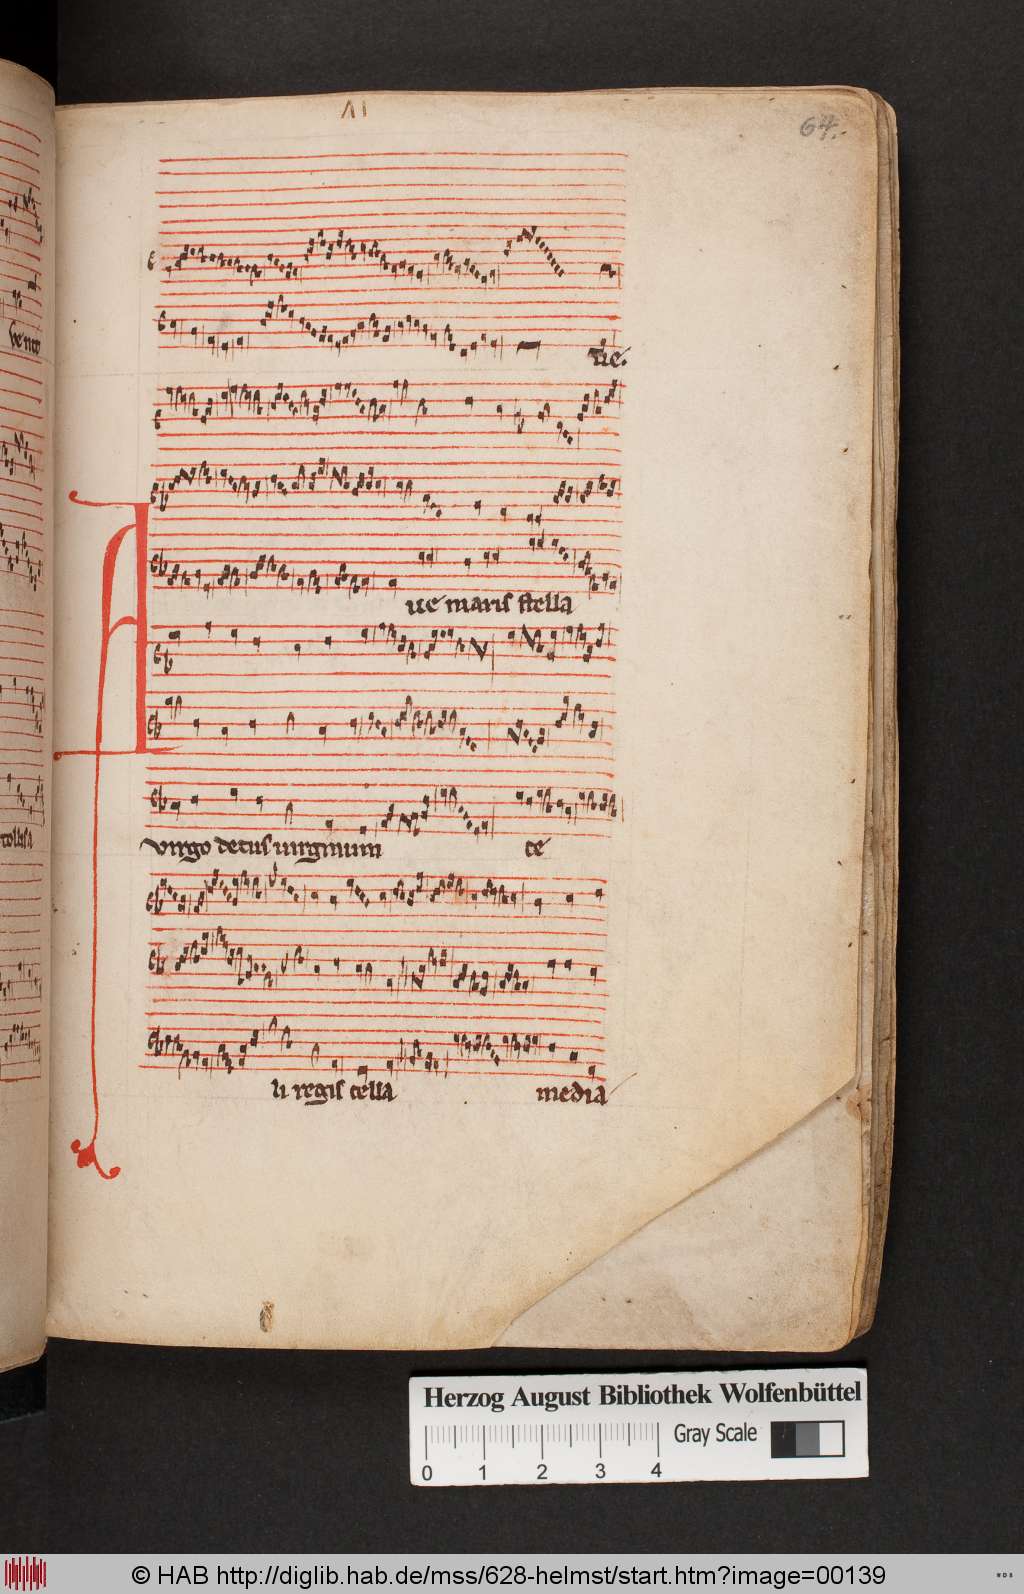 VI
64.
tie.
A
ue maris stella
virgo decus uirginum ce
li regis cella media
vento
tollysa
Herzog August Bibliothek Wolfenbüttel
Gray Scale
0 1 2 3 4
© HAB http://diglib.hab.de/mss/628-helmst/start.htm?image=00139